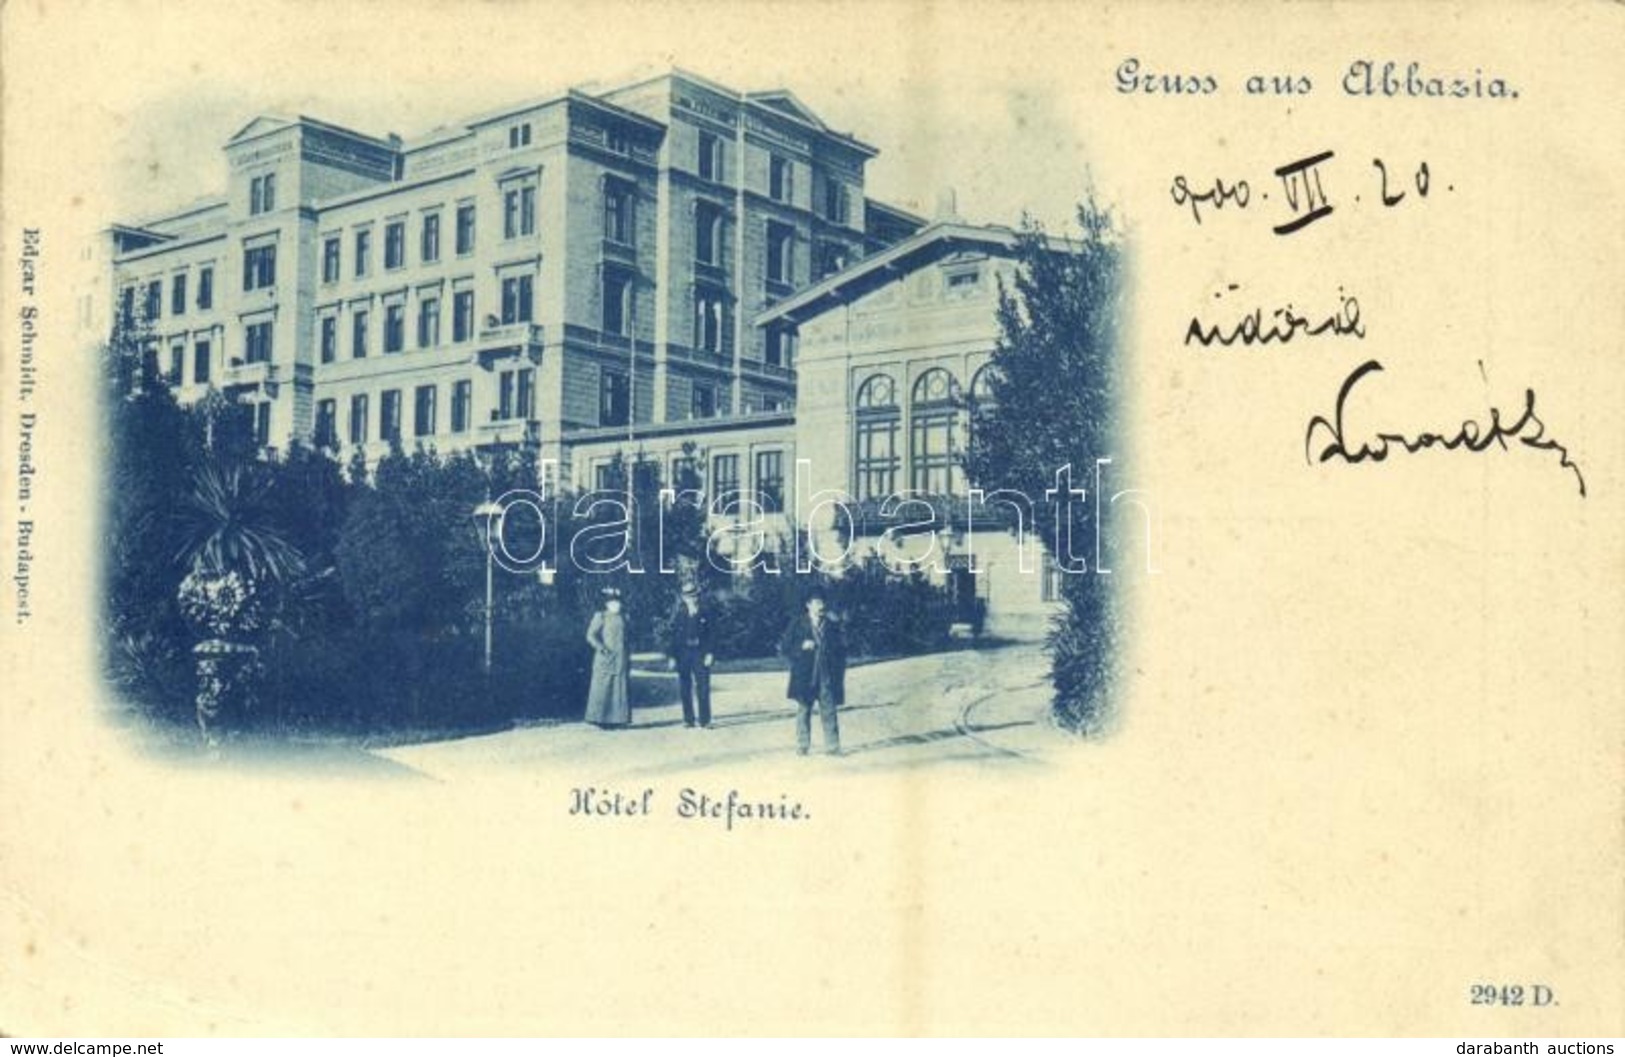 Gruss aus Abbazia.
900. VII. 20.
üdözöl
Hôtel Stefanie.
Edgar Schmidt. Dresden - Budapest.
2942 D.
darabanth
www.delcampe.net
darabanth auctions